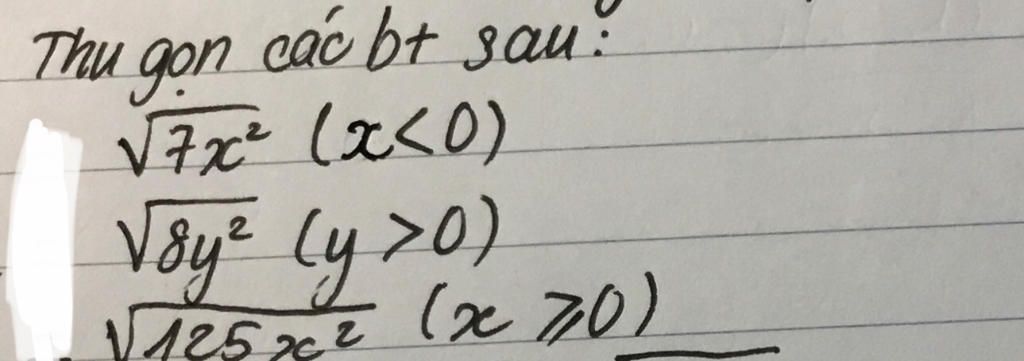 Thu gọn các bt sau:
√7x² (x<0)
√8y² (y>0)
√125x² (x ⩾0)